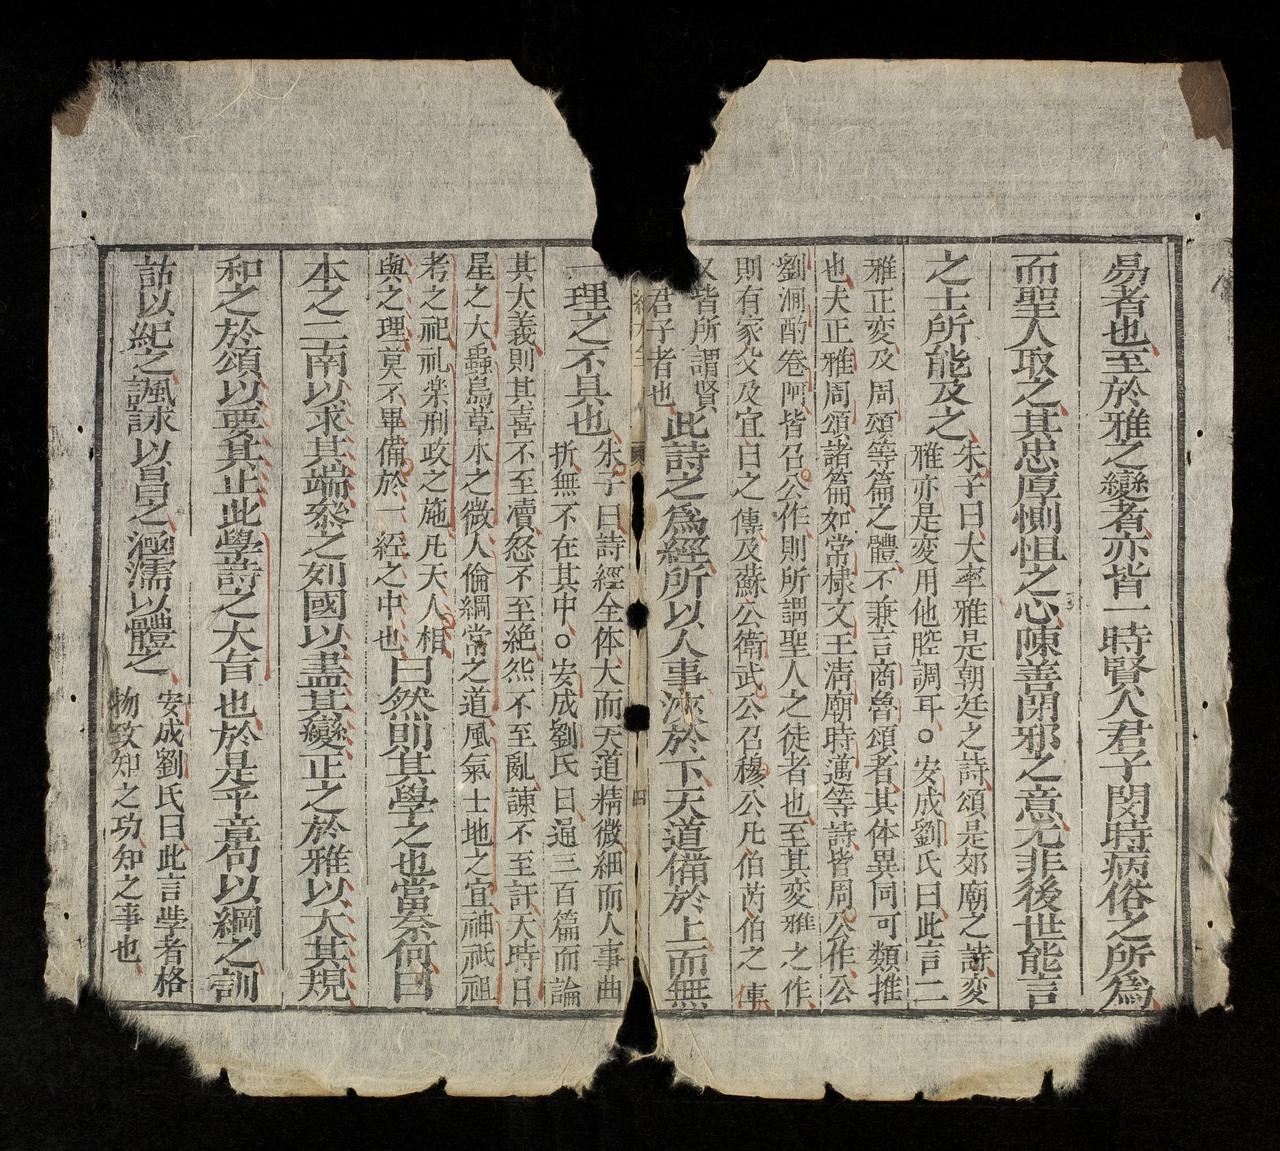 昜者也至於雅之變者亦皆一時賢人君子閔時病俗之所爲
而聖人取之其忠厚惻怛之心陳善閉邪之意尤非後世能言
之士所能及之
朱子曰大率雅是朝廷之詩頌是郊廟之詩変
雅亦是変用他腔調耳○安成劉氏曰此言二
雅正変及周頌等篇之體不兼言商魯頌者其体異同可類推
也大正雅周頌諸篇如常棣文王清廟時邁等詩皆周公作公
劉泂酌卷阿皆召公作則所謂聖人之徒者也至其変雅之作
則有家父及宜臼之傳及蘇公衛武公召穆公凡伯芮伯之傳
又皆所謂賢
君子者也
此詩之爲經所以人事浹於下天道備於上而無
四
一理之不具也
朱子曰詩經全体大而天道精微細而人事曲
折無不在其中○安成劉氏曰通三百篇而論
其大義則其喜不至瀆怒不至絶怨不至亂諫不至訐天時日
星之大蟲鳥草木之微人倫綱常之道風氣土地之宜神祇祖
考之祀礼楽刑政之施凡天人相
與之理莫不畢備於一經之中也
曰然則其學之也當奈何曰
本之二南以求其端叅之列國以盡其變正之於雅以大其規
和之於頌以要其止此學詩之大旨也於是乎章句以綱之訓
詁以紀之諷詠以昌之涵濡以體之
安成劉氏曰此言學者格
物致知之功知之事也